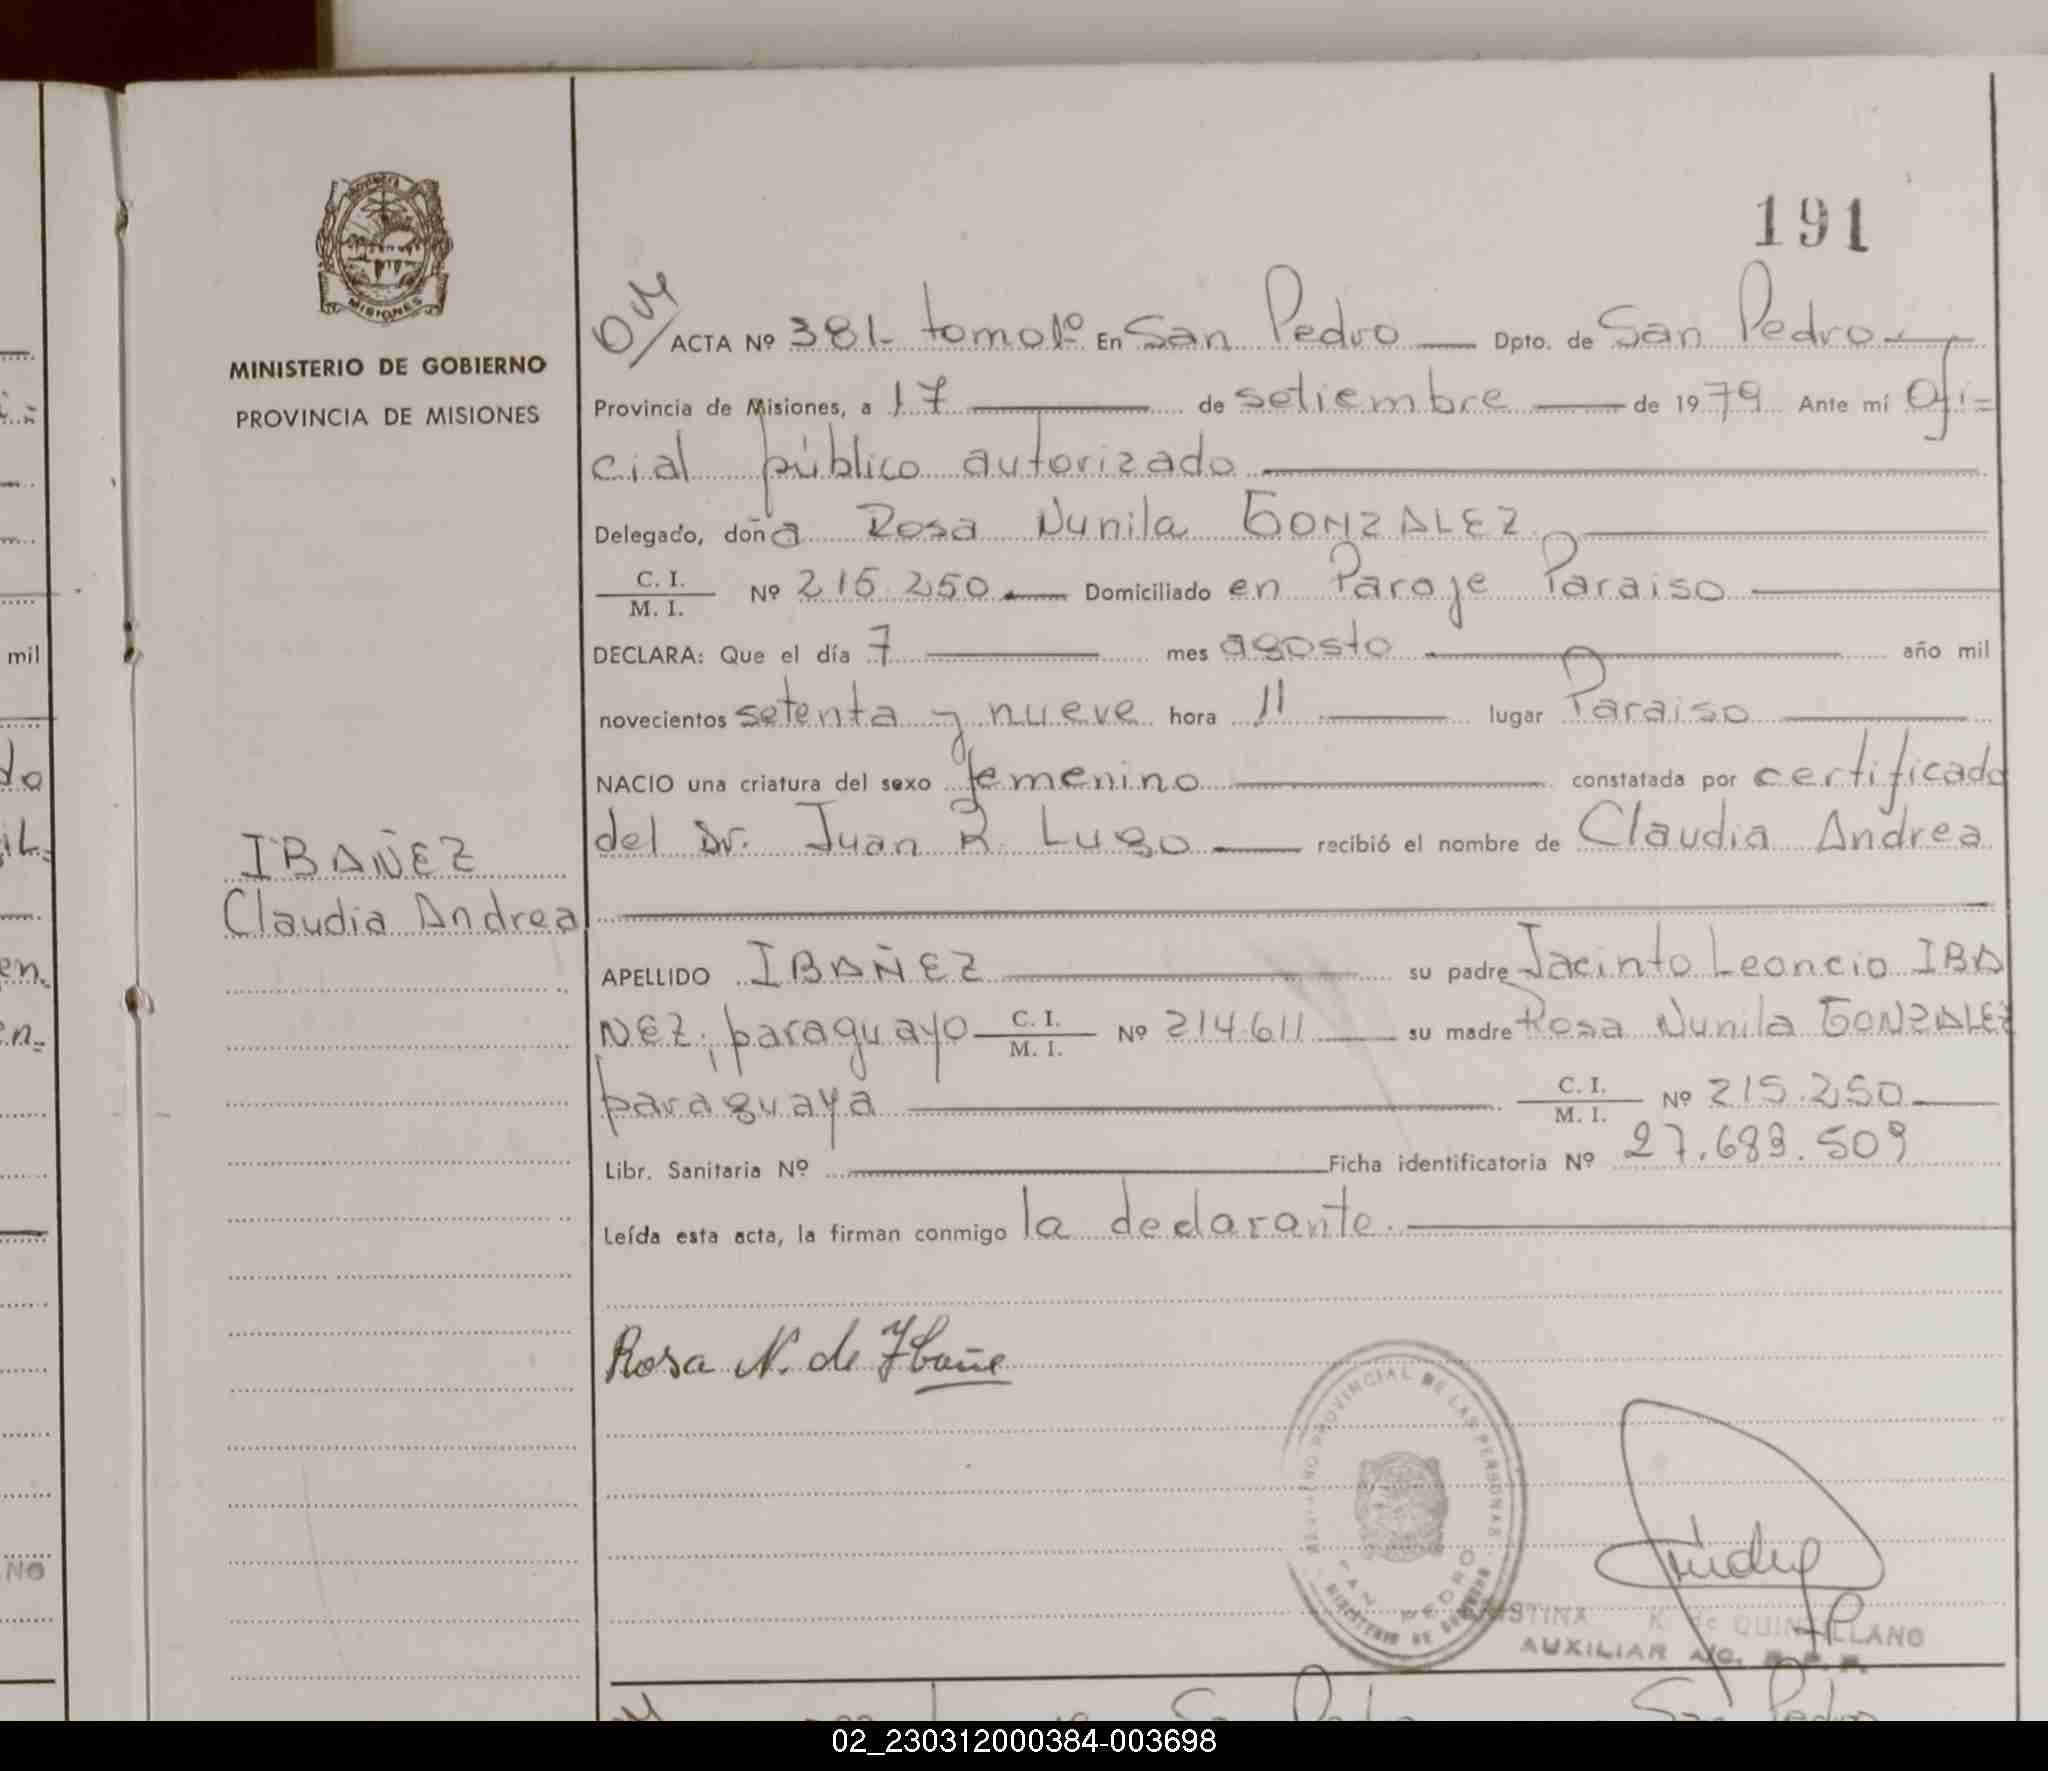 191
MISIONES
MINISTERIO DE GOBIERNO
PROVINCIA DE MISIONES
IBAÑEZ
Claudia Andrea
ACTA Nº 381- tomo 1º En San Pedro — Dpto. de San Pedro —
Provincia de Misiones, a 17 — de setiembre — de 1979 Ante mí Ofi=
cial público autorizado —
Delegado, doña Rosa Nunila GONZALEZ —
C. I. / M. I. Nº 215.250 — Domiciliado en Paraje Paraiso —
DECLARA: Que el día 7 — mes agosto — año mil
novecientos setenta y nueve hora 11 — lugar Paraiso —
NACIO una criatura del sexo femenino — constatada por certificado
del Dr. Juan R. Lugo — recibió el nombre de Claudia Andrea
APELLIDO IBAÑEZ — su padre Jacinto Leoncio IBA
ÑEZ, paraguayo C. I. / M. I. Nº 214.611 — su madre Rosa Nunila GONZALEZ
paraguaya — C. I. / M. I. Nº 215.250 —
Libr. Sanitaria Nº — Ficha identificatoria Nº 27.683.509
Leída esta acta, la firman conmigo la declarante. —
Rosa N. de Ybañe
PROVINCIAL DE LAS PERSONAS
SAN PEDRO
MINISTERIO DE GOBIERNO
CRISTINA K. de QUINTILLANO
AUXILIAR A/C.
02_230312000384-003698